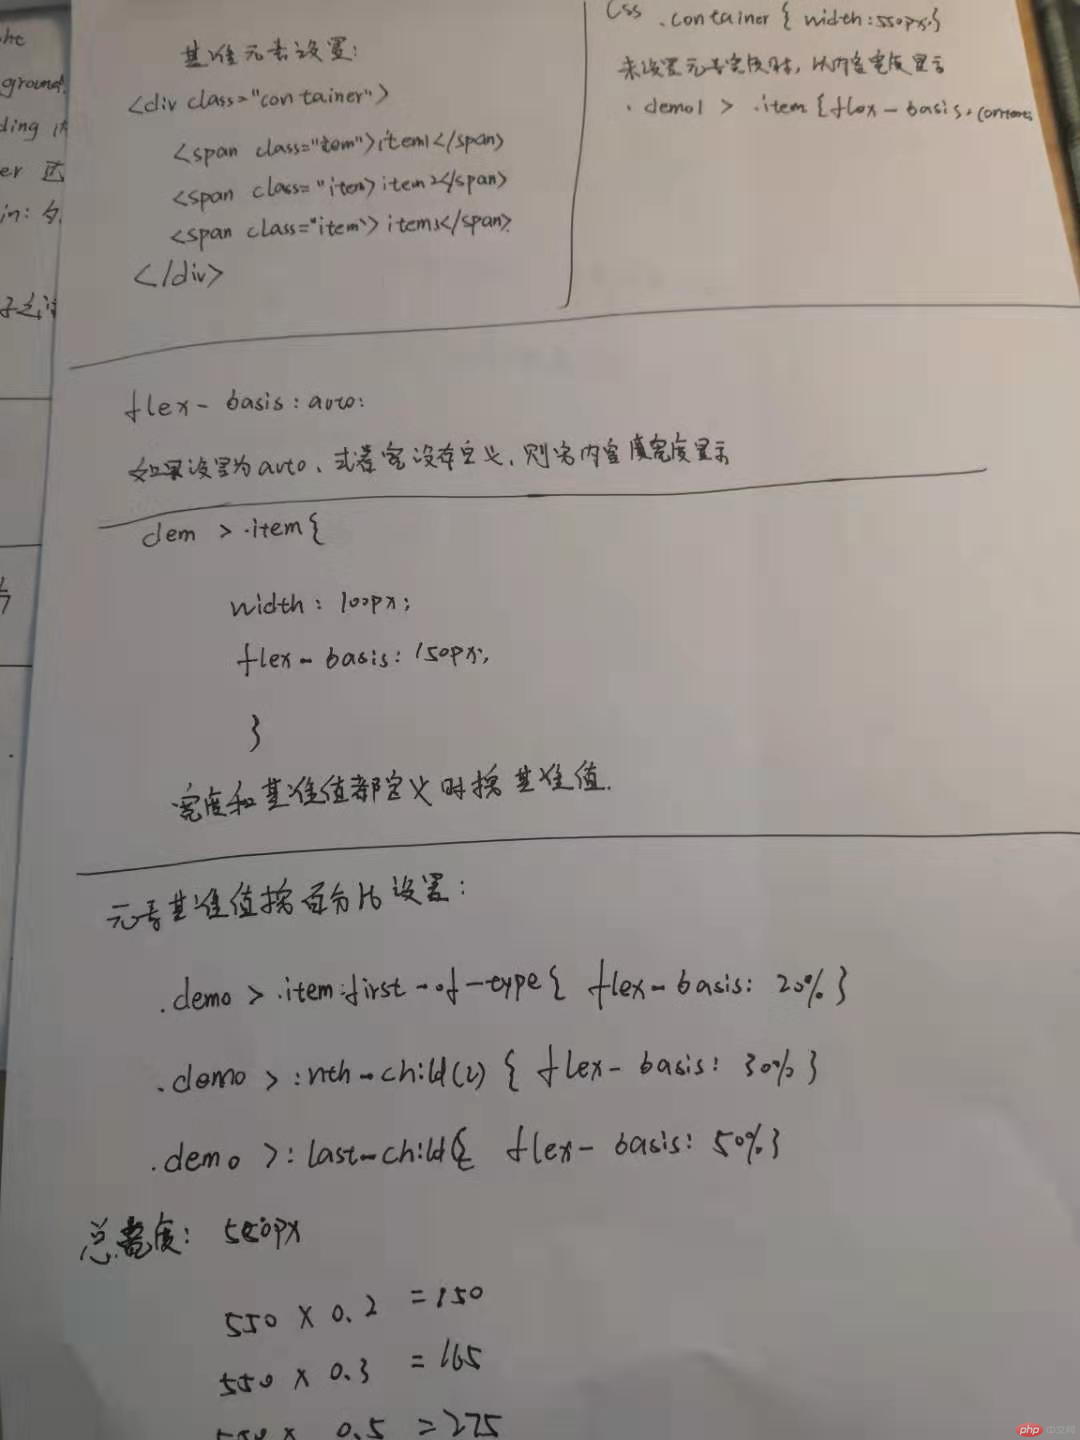 he
ground
ding
er
in:
基准元素设置:
<div class="container">
<span class="tom">item1</span>
<span class="item>item2</span>
<span class="item">item3</span>
</div>
Css .container { width:550px;}
未设置元素宽度时,以内容宽度显示
.demo1 > .item {flex-basis:content;
flex-basis:auto:
如果设置为auto、或者宽没有定义,则按内容宽度显示
dem > .item{
width: 100px;
flex-basis: 150px;
}
宽度和基准值都定义时按基准值.
元素基准值按百分比设置:
.demo > .item:first-of-type{ flex-basis: 20% }
.demo >:nth-child(2) { flex-basis: 30% }
.demo >:last-child{ flex-basis: 50% }
总宽度: 550px
550 × 0.2 =150
550 × 0.3 =165
550 × 0.5 =275
php 中文网